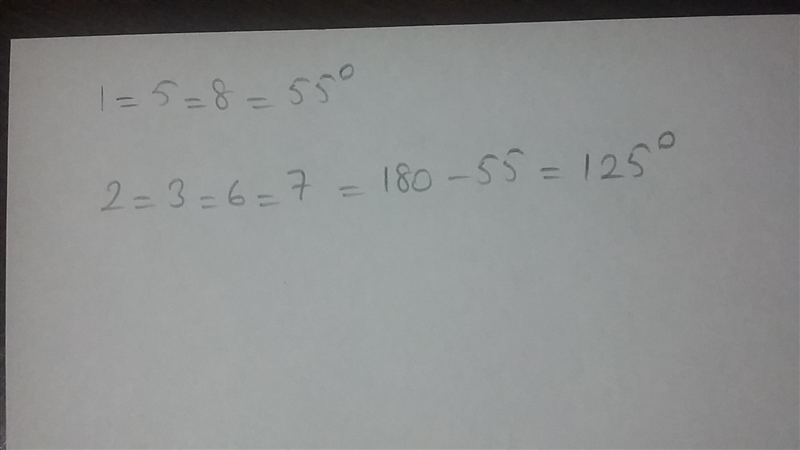 1 = 5 = 8 = 55°
2 = 3 = 6 = 7 = 180 - 55 = 125°